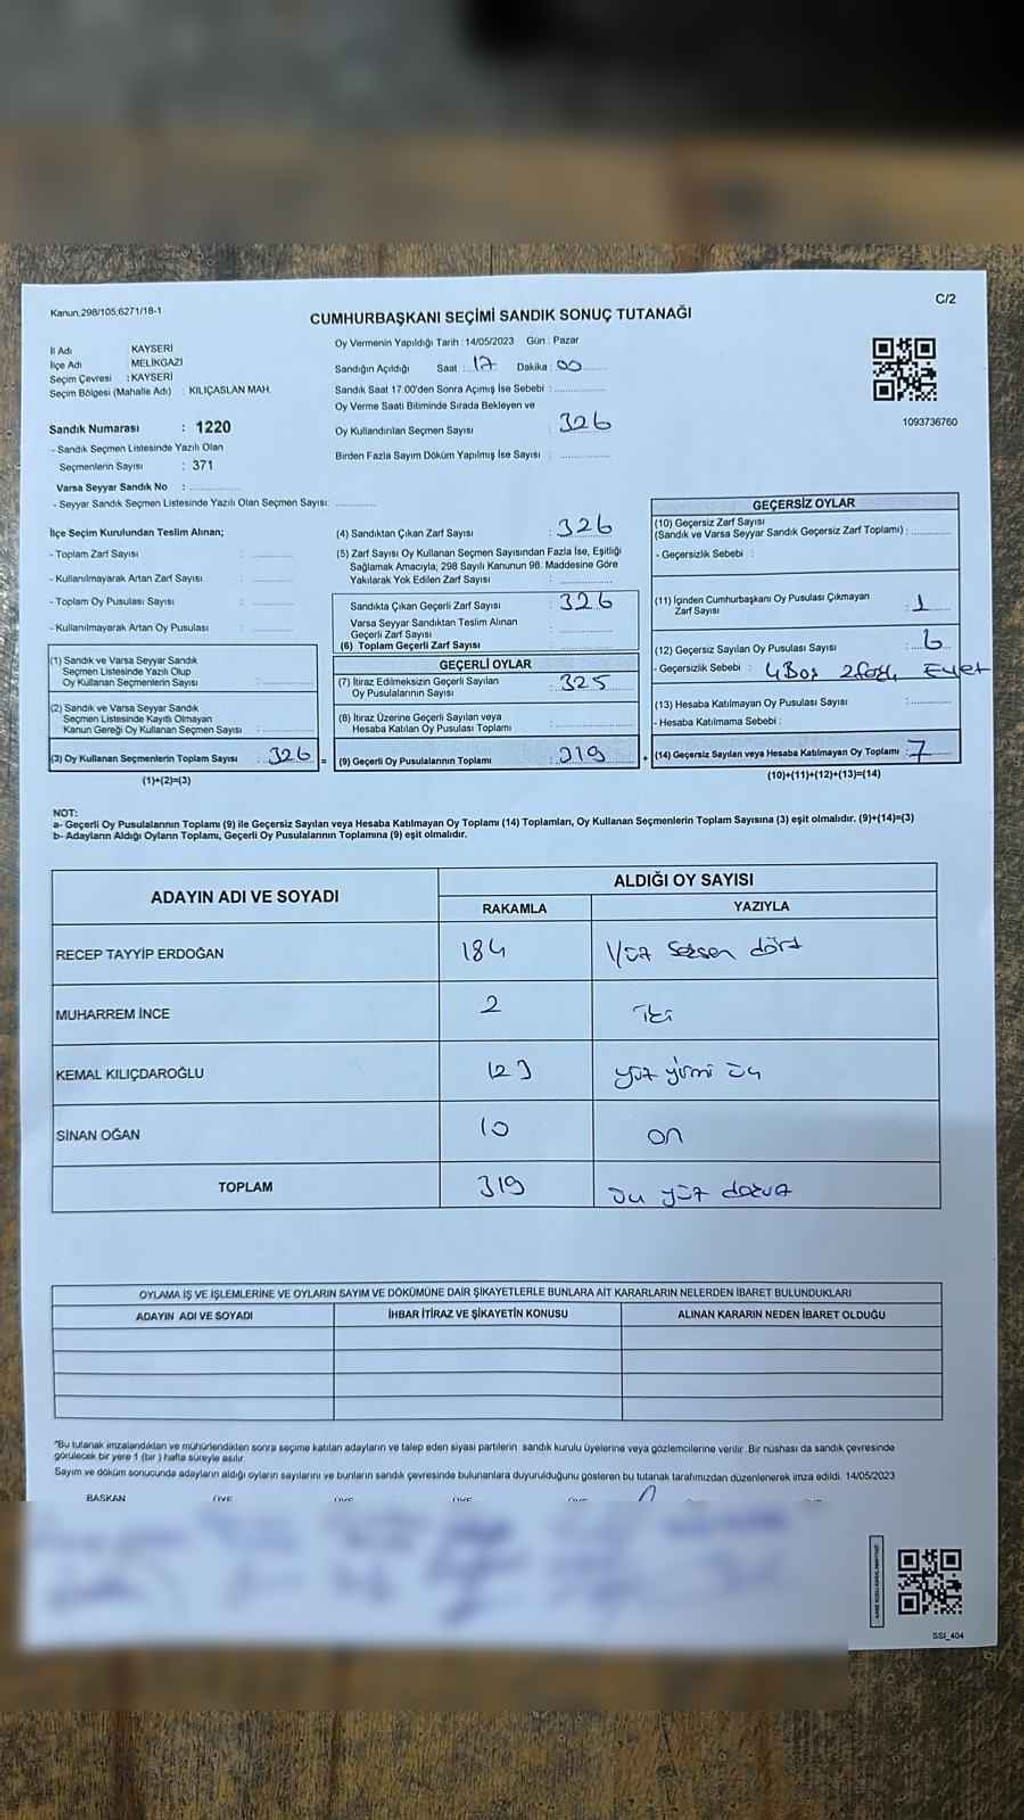 Kanun.298/105,6271/18-1
C/2
CUMHURBAŞKANI SEÇİMİ SANDIK SONUÇ TUTANAĞI
İl Adı KAYSERİ
İlçe Adı MELİKGAZİ
Seçim Çevresi : KAYSERİ
Seçim Bölgesi (Mahalle Adı) : KILIÇASLAN MAH.
Sandık Numarası : 1220
- Sandık Seçmen Listesinde Yazılı Olan
Seçmenlerin Sayısı : 371
Varsa Seyyar Sandık No :
- Seyyar Sandık Seçmen Listesinde Yazılı Olan Seçmen Sayısı:
Oy Vermenin Yapıldığı Tarih :14/05/2023 Gün : Pazar
Sandığın Açıldığı Saat : 17 Dakika : 00
Sandık Saat 17.00'den Sonra Açımış İse Sebebi :
Oy Verme Saati Bitiminde Sırada Bekleyen ve
Oy Kullandırılan Seçmen Sayısı : 326
Birden Fazla Sayım Döküm Yapılmış İse Sayısı :
1093736760
İlçe Seçim Kurulundan Teslim Alınan;
- Toplam Zarf Sayısı :
- Kullanılmayarak Artan Zarf Sayısı :
- Toplam Oy Pusulası Sayısı :
- Kullanılmayarak Artan Oy Pusulası :
(1) Sandık ve Varsa Seyyar Sandık
Seçmen Listesinde Yazılı Olup
Oy Kullanan Seçmenlerin Sayısı :
(2) Sandık ve Varsa Seyyar Sandık
Seçmen Listesinde Kayıtlı Olmayan
Kanun Gereği Oy Kullanan Seçmen Sayısı :
(3) Oy Kullanan Seçmenlerin Toplam Sayısı : 326 =
(1)+(2)=(3)
(4) Sandıktan Çıkan Zarf Sayısı : 326
(5) Zarf Sayısı Oy Kullanan Seçmen Sayısından Fazla İse, Eşitliği
Sağlamak Amacıyla; 298 Sayılı Kanunun 98. Maddesine Göre
Yakılarak Yok Edilen Zarf Sayısı :
Sandıkta Çıkan Geçerli Zarf Sayısı : 326
Varsa Seyyar Sandıktan Teslim Alınan
Geçerli Zarf Sayısı :
(6) Toplam Geçerli Zarf Sayısı
GEÇERLİ OYLAR
(7) İtiraz Edilmeksizin Geçerli Sayılan
Oy Pusulalarının Sayısı : 325
(8) İtiraz Üzerine Geçerli Sayılan veya
Hesaba Katılan Oy Pusulası Toplamı :
(9) Geçerli Oy Pusulalarının Toplamı : 319 +
GEÇERSİZ OYLAR
(10) Geçersiz Zarf Sayısı
(Sandık ve Varsa Seyyar Sandık Geçersiz Zarf Toplamı) :
- Geçersizlik Sebebi :
(11) İçinden Cumhurbaşkanı Oy Pusulası Çıkmayan
Zarf Sayısı : 1
(12) Geçersiz Sayılan Oy Pusulası Sayısı : 6
- Geçersizlik Sebebi : 4 Boş 2 Evet
(13) Hesaba Katılmayan Oy Pusulası Sayısı :
- Hesaba Katılmama Sebebi :
(14) Geçersiz Sayılan veya Hesaba Katılmayan Oy Toplamı : 7
(10)+(11)+(12)+(13)=(14)
NOT:
a- Geçerli Oy Pusulalarının Toplamı (9) ile Geçersiz Sayılan veya Hesaba Katılmayan Oy Toplamı (14) Toplamları, Oy Kullanan Seçmenlerin Toplam Sayısına (3) eşit olmalıdır. (9)+(14)=(3)
b- Adayların Aldığı Oyların Toplamı, Geçerli Oy Pusulalarının Toplamına (9) eşit olmalıdır.
ADAYIN ADI VE SOYADI
ALDIĞI OY SAYISI
RAKAMLA YAZIYLA
RECEP TAYYİP ERDOĞAN 184 Yüz seksen dört
MUHARREM İNCE 2 iki
KEMAL KILIÇDAROĞLU 123 yüz yirmi üç
SİNAN OĞAN 10 on
TOPLAM 319 üç yüz dokuz
OYLAMA İŞ VE İŞLEMLERİNE VE OYLARIN SAYIM VE DÖKÜMÜNE DAİR ŞİKAYETLERLE BUNLARA AİT KARARLARIN NELERDEN İBARET BULUNDUKLARI
ADAYIN ADI VE SOYADI İHBAR İTİRAZ VE ŞİKAYETİN KONUSU ALINAN KARARIN NEDEN İBARET OLDUĞU
"Bu tutanak imzalandıktan ve mühürlendikten sonra seçime katılan adayların ve talep eden siyasi partilerin sandık kurulu üyelerine veya gözlemcilerine verilir. Bir nüshası da sandık çevresinde
görülecek bir yere 1 (bir ) hafta süreyle asılır.
Sayım ve döküm sonucunda adayların aldığı oyların sayılarını ve bunların sandık çevresinde bulunanlara duyurulduğunu gösteren bu tutanak tarafımızdan düzenlenerek imza edildi. 14/05/2023
BAŞKAN ÜYE ÜYE ÜYE ÜYE
SSI_404